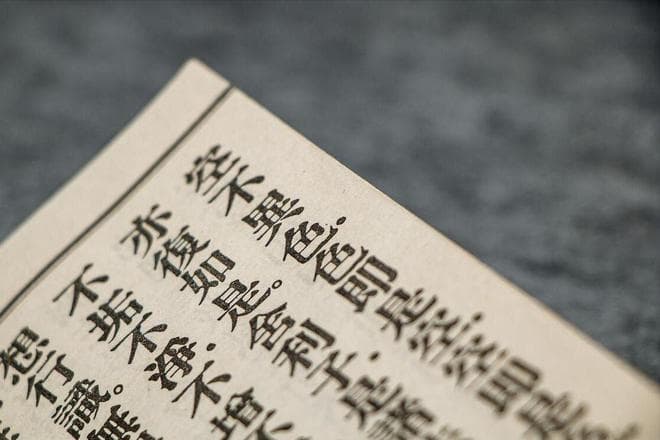 空不異色．色即是空．空即是
亦復如是。舍利子．是諸
不垢不淨．不增不
想行識。無